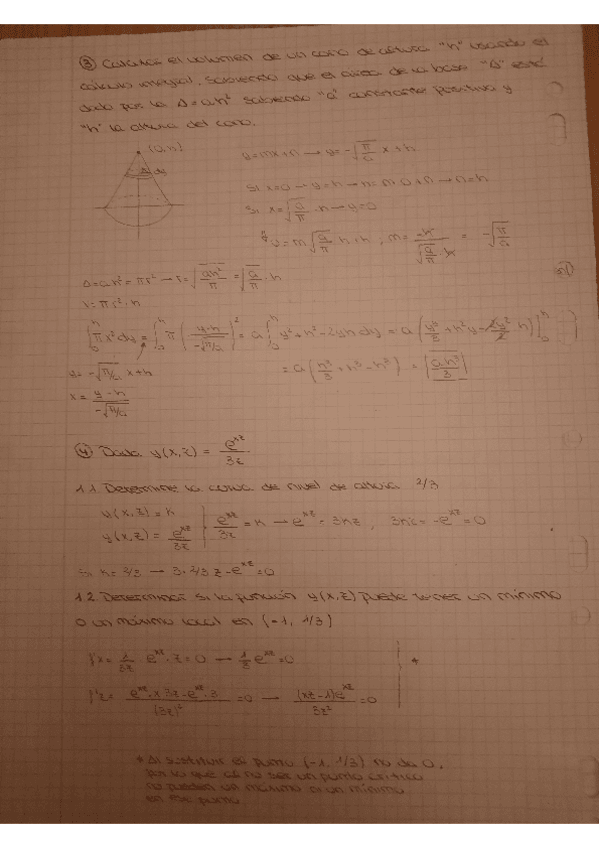 ③ Calcular el volumen de un cono de altura "h" usando el
cálculo integral, sabiendo que el área de la base "A" está
dada por la A = ah² sabiendo "a" constante positiva y
"h" la altura del cono.
(0,h)
y = mx+n → y = -√(π/a) x + h
Si x=0 → y=h → h = m·0+n → n=h
Si x = √(a/π) h → y=0
0 = m √(a/π) h + h ; m = -h / (√(a/π)·h) = -√(π/a)
A = ah² = πr² → r = √(ah²/π) = √(a/π) · h
V = πr²·h
∫₀ʰ πx² dy = ∫₀ʰ π ((y-h)/(-√(π/a)))² = a ∫₀ʰ y²+h²-2yh dy = a (y³/3 + h²y - 2y²/2 h) ]₀ʰ
y = -√(π/a) x + h
= a (h³/3 + h³ - h³) = ah³/3
x = (y-h)/(-√(π/a))
④ Dada y(x,z) = e^xz / 3z
1.1. Determine la curva de nivel de altura 2/3
y(x,z) = k
y(x,z) = e^xz / 3z
e^xz / 3z = k → e^xz = 3kz , 3kz - e^xz = 0
Si k = 2/3 → 3·2/3 z - e^xz = 0
1.2. Determinar si la función y(x,z) puede tener un mínimo
o un máximo local en (-1, 1/3)
f'x = 1/3z e^xz · z = 0 → 1/3 e^xz = 0
f'z = (e^xz · x 3z - e^xz · 3) / (3z)² = 0 → (xz-1)e^xz / 3z² = 0
*
* Al sustituir el punto (-1, 1/3) no da 0,
por lo que al no ser un punto crítico
no pueden un máximo ni un mínimo
en ese punto